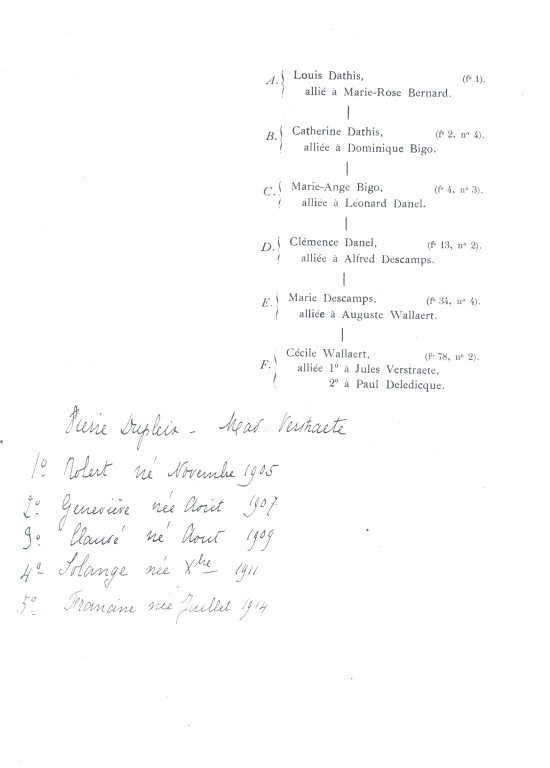 A. Louis Dathis, (fe 1).
allié à Marie-Rose Bernard.
B. Catherine Dathis, (fe 2, no 4).
alliée à Dominique Bigo.
C. Marie-Ange Bigo, (fe 4, no 3).
alliée à Léonard Danel.
D. Clémence Danel, (fe 13, no 2).
alliée à Alfred Descamps.
E. Marie Descamps, (fe 34, no 4).
alliée à Auguste Wallaert.
F. Cécile Wallaert, (fe 78, no 2).
alliée 1o à Jules Verstraete,
2o à Paul Deledicque.
Pierre Dupleix - Mad. Verstraete
1o Robert né Novembre 1905
2o Geneviève née Août 1907
3o Claude né Aout 1909
4o Solange née Xbre 1911
5o Francine née Juillet 1914